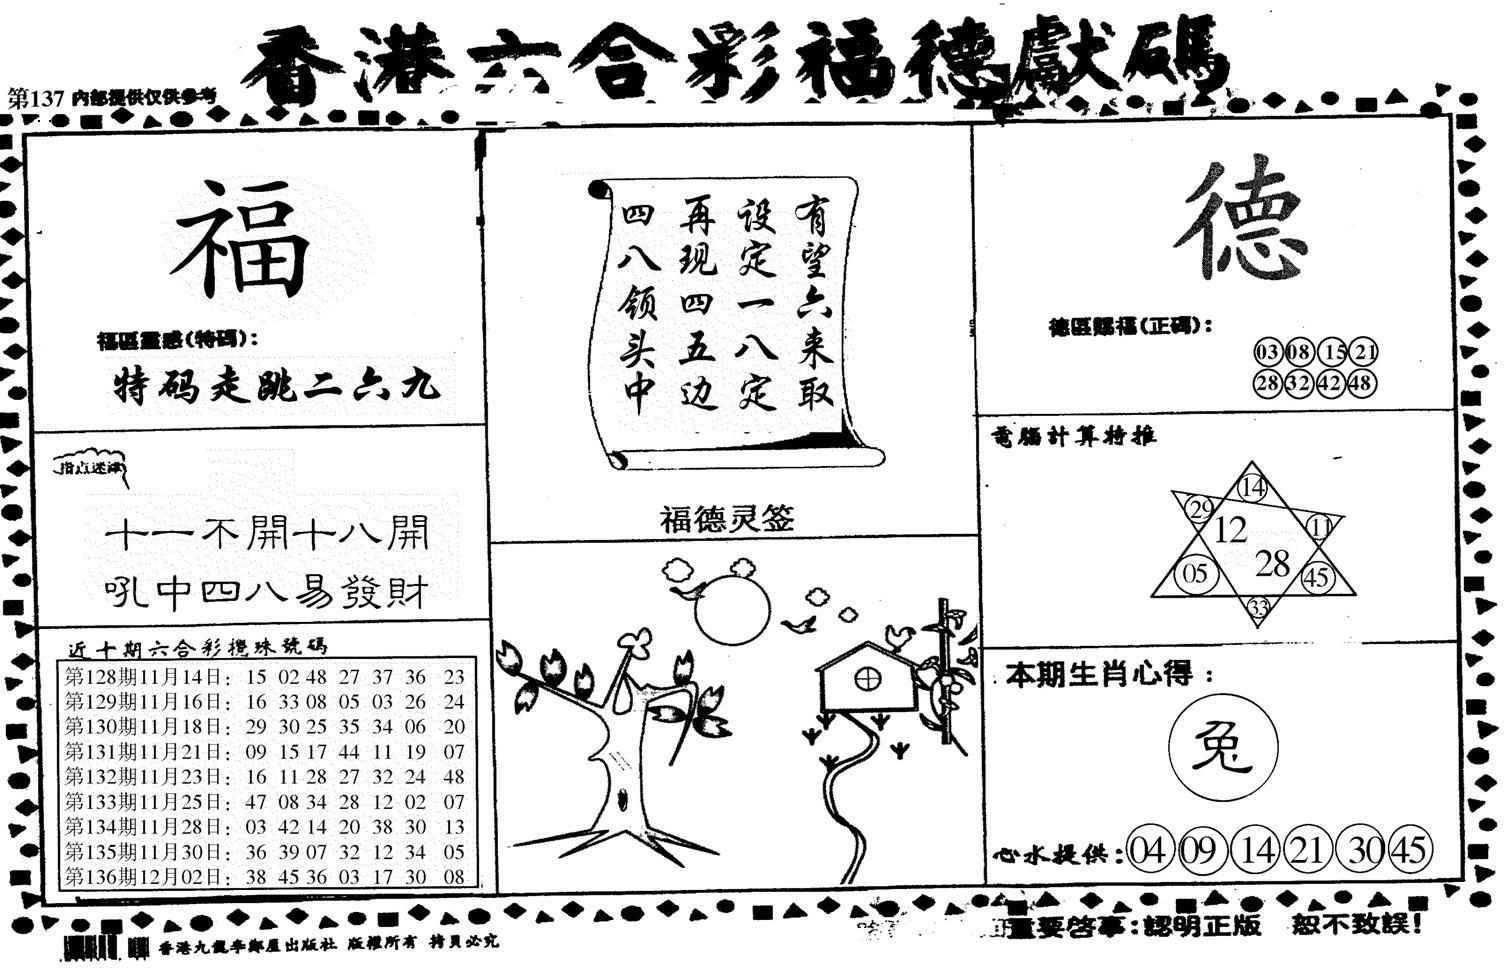 香港六合彩福德獻碼
第137 内部提供仅供参考
福
福區靈感(特碼):
特码走跳二六九
指点迷津
十一不開十八開
吼中四八易發財
近十期六合彩攪珠號碼
第128期11月14日: 15 02 48 27 37 36 23
第129期11月16日: 16 33 08 05 03 26 24
第130期11月18日: 29 30 25 35 34 06 20
第131期11月21日: 09 15 17 44 11 19 07
第132期11月23日: 16 11 28 27 32 24 48
第133期11月25日: 47 08 34 28 12 02 07
第134期11月28日: 03 42 14 20 38 30 13
第135期11月30日: 36 39 07 32 12 34 05
第136期12月02日: 38 45 36 03 17 30 08
有望六来取
设定一八定
再现四五边
四八领头中
福德灵签
德
德區賜福(正碼):
03 08 15 21
28 32 42 48
電腦計算特推
14
29
11
12
28
05
45
33
本期生肖心得:
兔
心水提供: 04 09 14 21 30 45
香港九龍李鄭屋出版社 版權所有 拷貝必究
重要啓事:認明正版 恕不致誤!